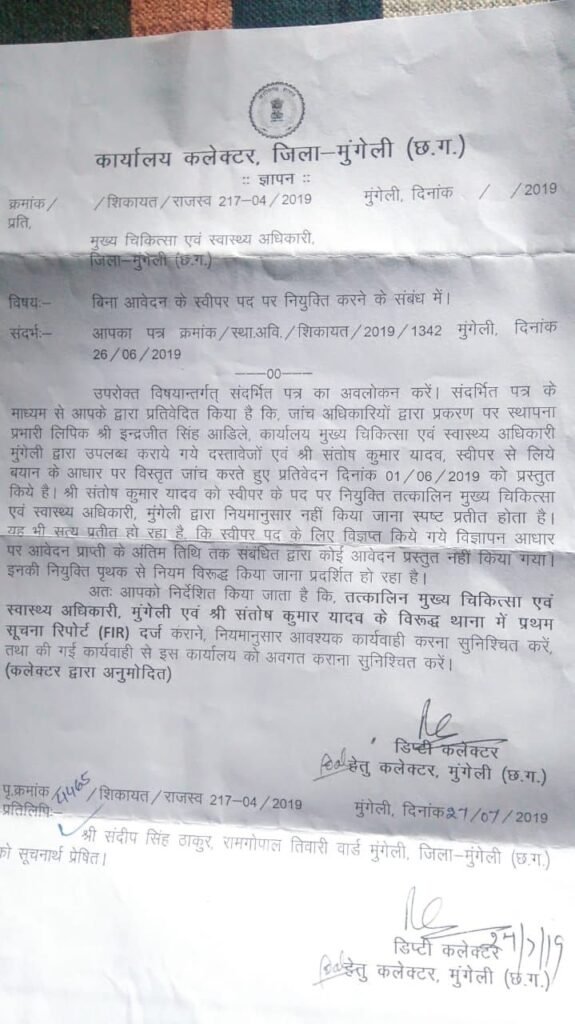 कार्यालय कलेक्टर, जिला–मुंगेली (छ.ग.)
:: ज्ञापन ::
क्रमांक/ /शिकायत/राजस्व 217-04/2019 मुंगेली, दिनांक / /2019
प्रति,
मुख्य चिकित्सा एवं स्वास्थ्य अधिकारी,
जिला–मुंगेली (छ.ग.)
विषयः– बिना आवेदन के स्वीपर पद पर नियुक्ति करने के संबंध में।
संदर्भः– आपका पत्र क्रमांक/स्था.अवि./शिकायत/2019/1342 मुंगेली, दिनांक
26/06/2019
———00———
उपरोक्त विषयान्तर्गत् संदर्भित पत्र का अवलोकन करें। संदर्भित पत्र के
माध्यम से आपके द्वारा प्रतिवेदित किया है कि, जांच अधिकारियों द्वारा प्रकरण पर स्थापना
प्रभारी लिपिक श्री इन्द्रजीत सिंह आडिले, कार्यालय मुख्य चिकित्सा एवं स्वास्थ्य अधिकारी
मुंगेली द्वारा उपलब्ध कराये गये दस्तावेजों एवं श्री संतोष कुमार यादव, स्वीपर से लिये
बयान के आधार पर विस्तृत जांच करते हुए प्रतिवेदन दिनांक 01/06/2019 को प्रस्तुत
किये है। श्री संतोष कुमार यादव को स्वीपर के पद पर नियुक्ति तत्कालिन मुख्य चिकित्सा
एवं स्वास्थ्य अधिकारी, मुंगेली द्वारा नियमानुसार नहीं किया जाना स्पष्ट प्रतीत होता है।
यह भी सत्य प्रतीत हो रहा है, कि स्वीपर पद के लिए विज्ञप्त किये गये विज्ञापन आधार
पर आवेदन प्राप्ती के अंतिम तिथि तक संबंधित द्वारा कोई आवेदन प्रस्तुत नहीं किया गया।
इनकी नियुक्ति पृथक से नियम विरूद्ध किया जाना प्रदर्शित हो रहा है।
अतः आपको निर्देशित किया जाता है कि, तत्कालिन मुख्य चिकित्सा एवं
स्वास्थ्य अधिकारी, मुंगेली एवं श्री संतोष कुमार यादव के विरूद्ध थाना में प्रथम
सूचना रिपोर्ट (FIR) दर्ज कराने, नियमानुसार आवश्यक कार्यवाही करना सुनिश्चित करें,
तथा की गई कार्यवाही से इस कार्यालय को अवगत कराना सुनिश्चित करें।
(कलेक्टर द्वारा अनुमोदित)
डिप्टी कलेक्टर
हेतु कलेक्टर, मुंगेली (छ.ग.)
पृ.क्रमांक/4465/शिकायत/राजस्व 217-04/2019 मुंगेली, दिनांक 27/07/2019
प्रतिलिपिः–
श्री संदीप सिंह ठाकुर, रामगोपाल तिवारी वार्ड मुंगेली, जिला–मुंगेली (छ.ग.)
को सूचनार्थ प्रेषित।
डिप्टी कलेक्टर
हेतु कलेक्टर, मुंगेली (छ.ग.)